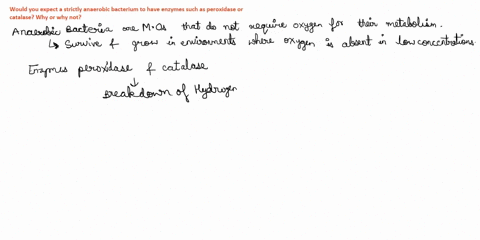 Would you expect a strictly anaerobic bacterium to have enzymes such as peroxidase or
catalase? Why or why not?
Anaerobic Bacteria are M.Os that do not require oxygen for their metabolism.
↳ Survive & grow in enviroments where oxygen is absent in low concntrations
Enzymes peroxidase & catalase
↓
Breakdown of Hydrogen